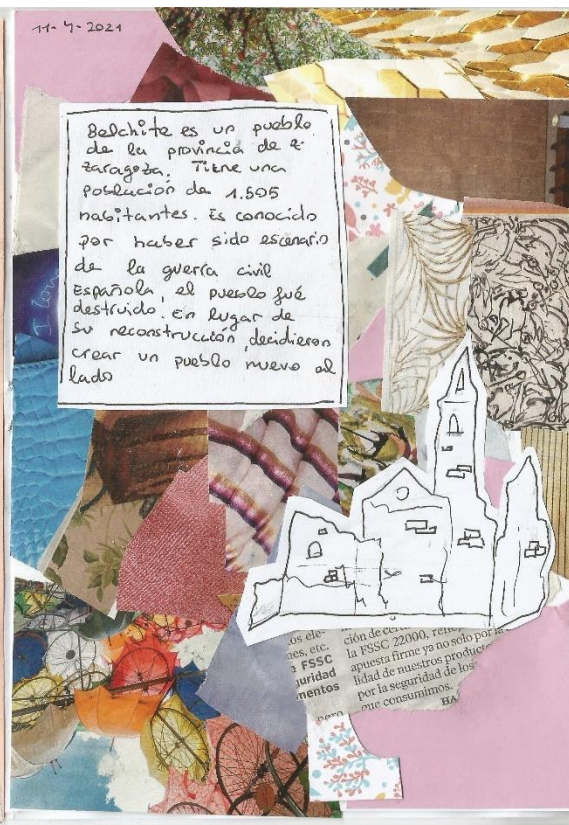 11-4-2021
Belchite es un pueblo
de la provincia de z
zaragoza. Tiene una
población de 1.595
habitantes. Es conocido
por haber sido escenario
de la guerra civil
Española, el pueblo fué
destruido. En lugar de
su reconstrucción decidieron
crear un pueblo nuevo al
lado
I love
os ele-
nes, etc.
FSSC
uridad
mentos
ción de
la FSSC 22000,
apuesta firme ya no solo por
lidad de nuestros produc
por la seguridad de los
que consumimos.
HA